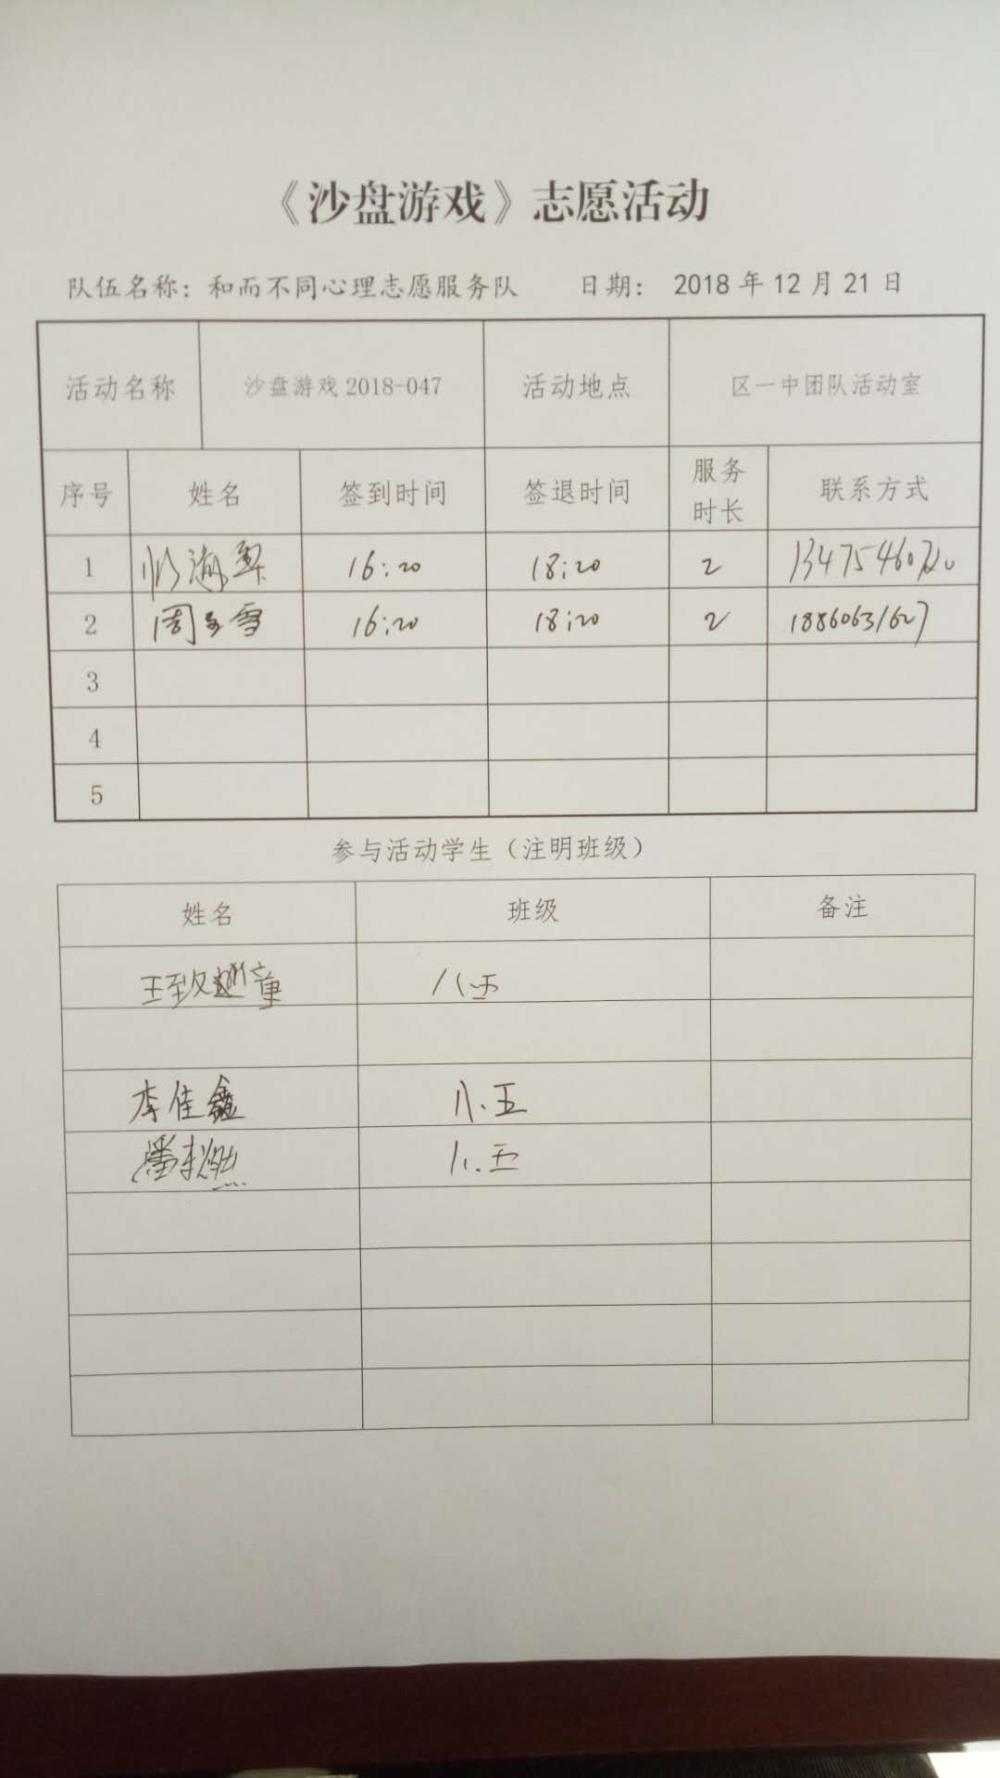 《沙盘游戏》志愿活动
队伍名称：和而不同心理志愿服务队 日期： 2018 年 12 月 21 日
活动名称 沙盘游戏 2018-047 活动地点 区一中团队活动室
序号 姓名 签到时间 签退时间 服务时长 联系方式
1 16:20 18:20 2
2 周玉雪 16:20 18:20 2 18860631627
3
4
5
参与活动学生（注明班级）
姓名 班级 备注
八.五
李佳鑫 八.五
八.五